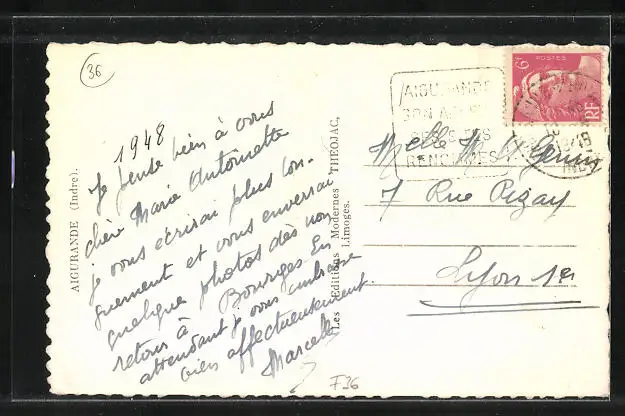 36
1948
Je pense bien à vous
chère Marie Antoinette
je vous écrirai plus lon-
guement et vous enverrai
quelque photos dès mon
retour à Bourges. En
attendant je vous embrasse
bien affectueusement
Marcelle
AIGURANDE (Indre).
Les Editions Modernes THEOJAC,
Limoges.
AIGURANDE
SON
SES
RENCINES
6F POSTES
RF
Melle M. A.
7 Rue Pizay
Lyon 1er
F36